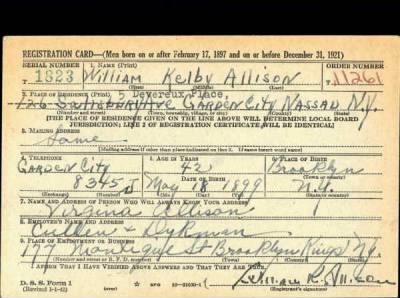 REGISTRATION CARD—(Men born on or after February 17, 1897 and on or before December 31, 1921)
SERIAL NUMBER 1. NAME (Print) ORDER NUMBER
1823 William Kelby Allison 11261
(First) (Middle) (Last)
2. PLACE OF RESIDENCE (Print) 5 Devereux Place,
126 Salisbury Ave Garden City Nassau N.Y.
(Number and street) (Town, township, village, or city) (County) (State)
[THE PLACE OF RESIDENCE GIVEN ON THE LINE ABOVE WILL DETERMINE LOCAL BOARD
JURISDICTION; LINE 2 OF REGISTRATION CERTIFICATE WILL BE IDENTICAL]
3. MAILING ADDRESS
Same
[Mailing address if other than place indicated on line 2. If same insert word same]
4. TELEPHONE 5. AGE IN YEARS 6. PLACE OF BIRTH
Garden City 42 Brooklyn
8345 J May 18 1899 N.Y.
(Exchange) (Number) (Mo.) (Day) (Yr.) (State or country)
7. NAME AND ADDRESS OF PERSON WHO WILL ALWAYS KNOW YOUR ADDRESS
Virginia Allison
8. EMPLOYER'S NAME AND ADDRESS
Cullen & Dykman
9. PLACE OF EMPLOYMENT OR BUSINESS
177 Montague St Brooklyn Kings NY
(Number and street or R. F. D. number) (Town) (County) (State)
I AFFIRM THAT I HAVE VERIFIED ABOVE ANSWERS AND THAT THEY ARE TRUE.
D. S. S. Form 1 William K. Allison
(Revised 1-1-42) (over) (Registrant's signature)